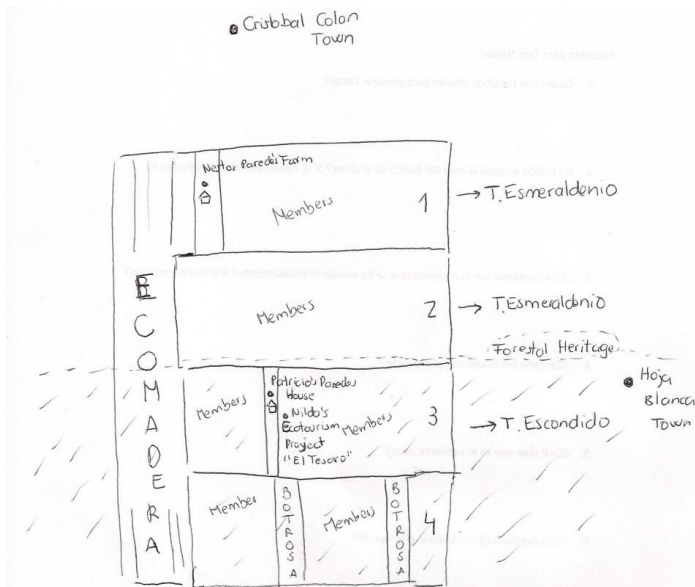 Cristobal Colon
Town
Nestor Paredes Farm
Members
1
→ T. Esmeraldenio
ECOMADERA
Members
2
→ T. Esmeraldenio
Forestal Heritage
Hoja
Blanca
Town
Members
Patricio's Paredes
House
Nildo's
Ecotourism
Project
"El Tesoro"
Members
3
→ T. Escondido
Member
BOTROSA
Members
BOTROSA
4